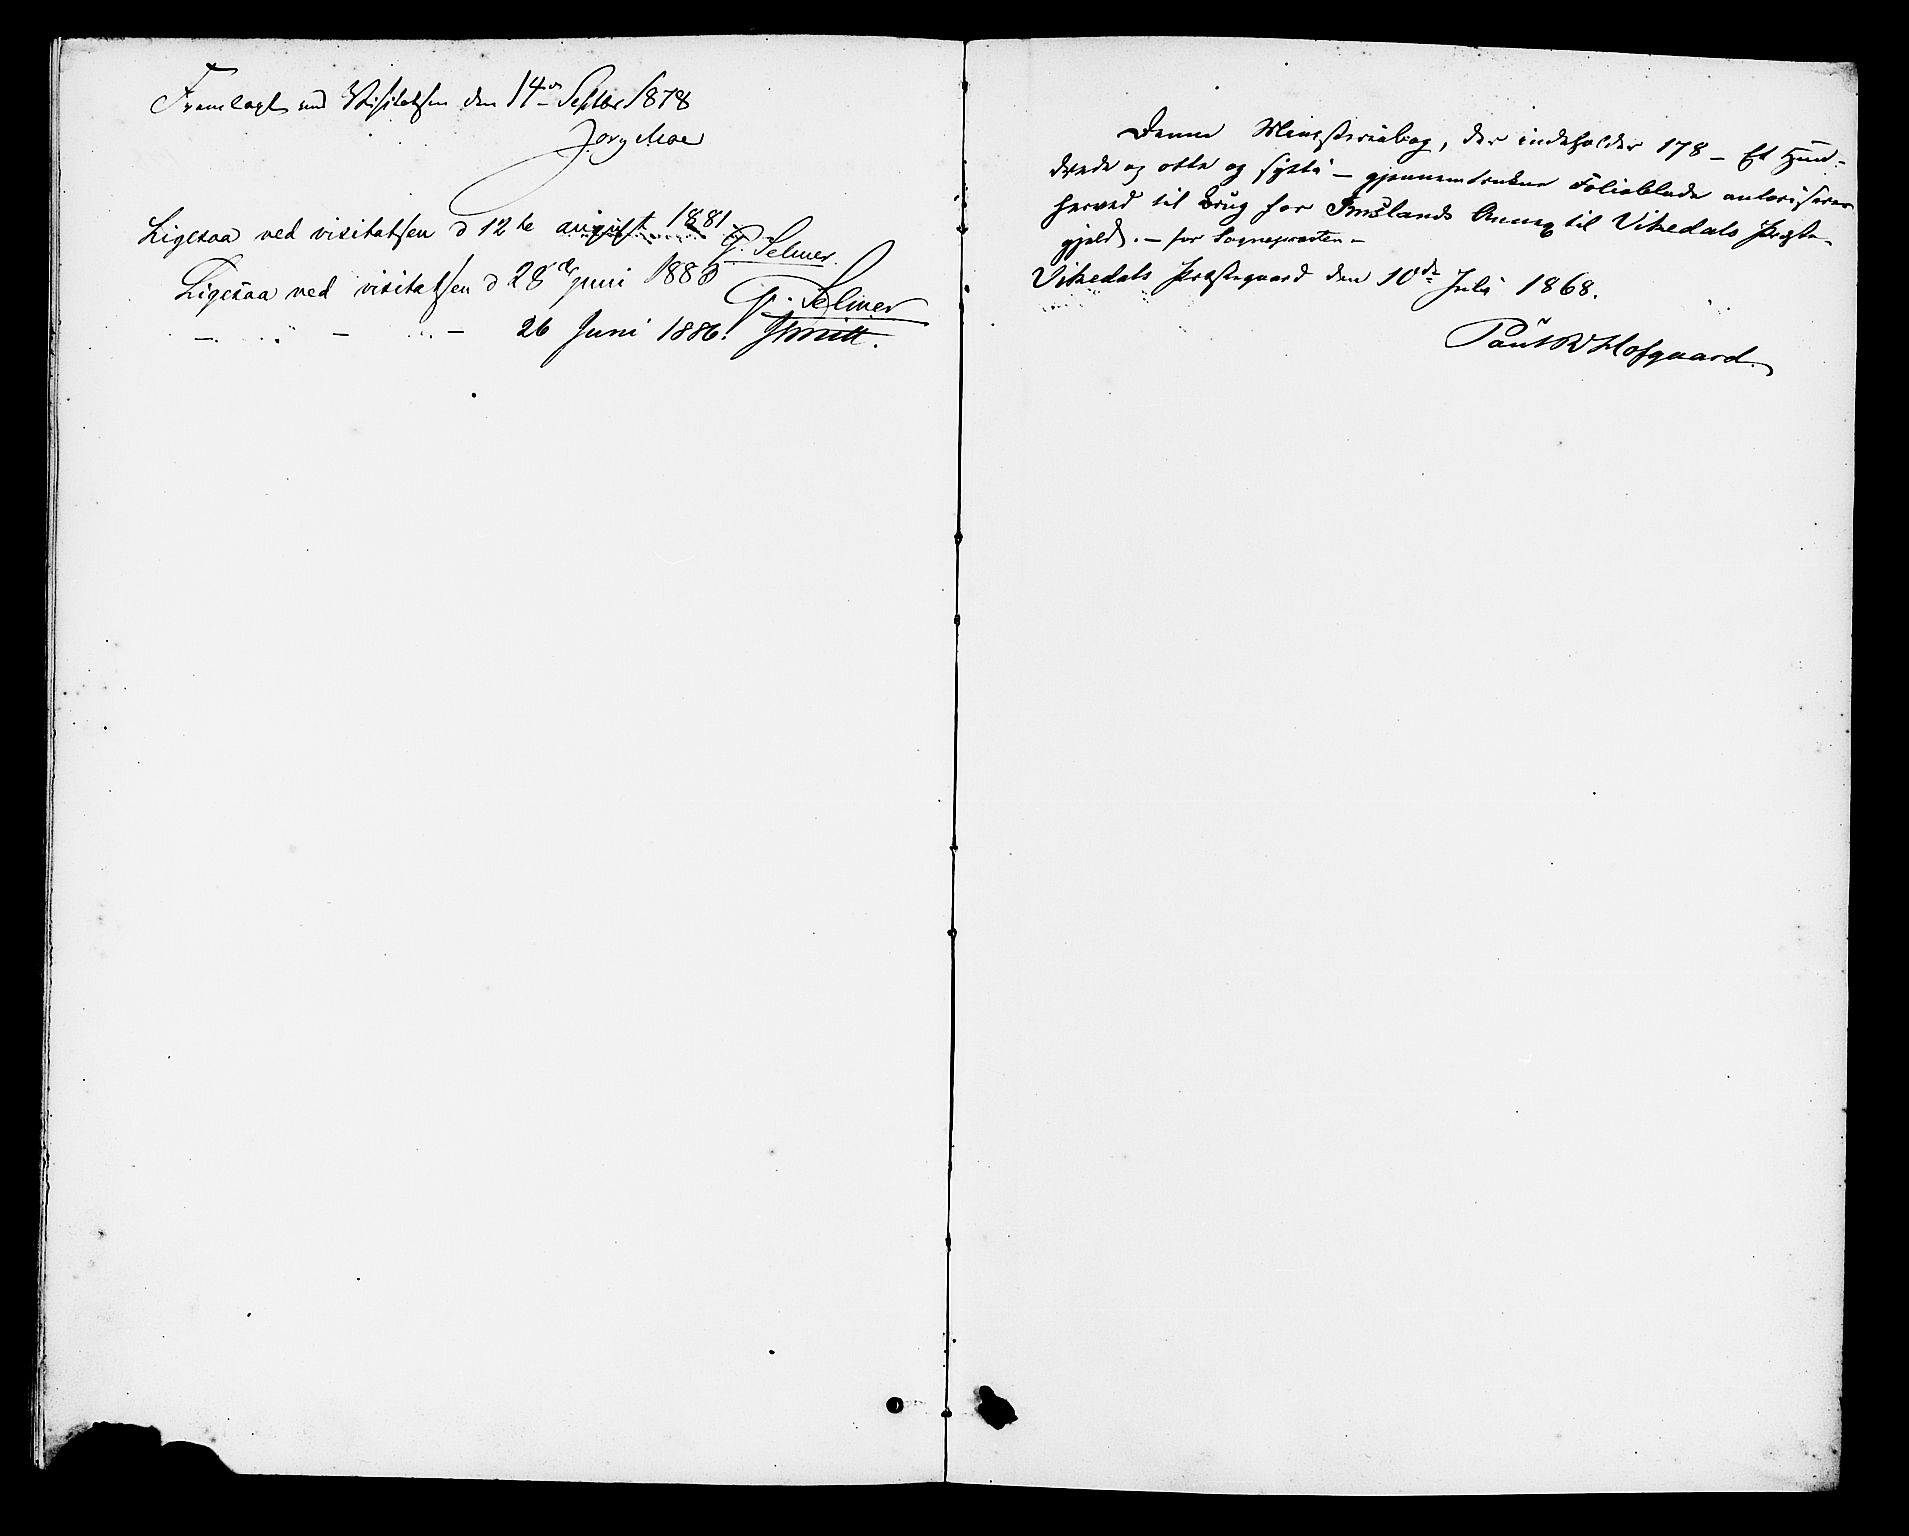 Fremlagt ved Visitatsen den 14de Septbr 1878
Jørg Moe
Ligesaa ved visitatsen d 12te august 1881
J. Selmer.
Ligesaa ved visitatsen d 28de juni 1883
J. Selmer
— " — " — 26 Juni 1886.
Denne Ministerialbog, der indeholder 178 - Et Hun-
drede og otte og sytti - gjennemtrukne Folioblade autoriseres
herved til Brug for Imslands Annex til Vikedals Præste-
gjeld. - for Sognepræsten -
Vikedals Præstegaard den 10de Juli 1868.
Paul W Hofgaard.